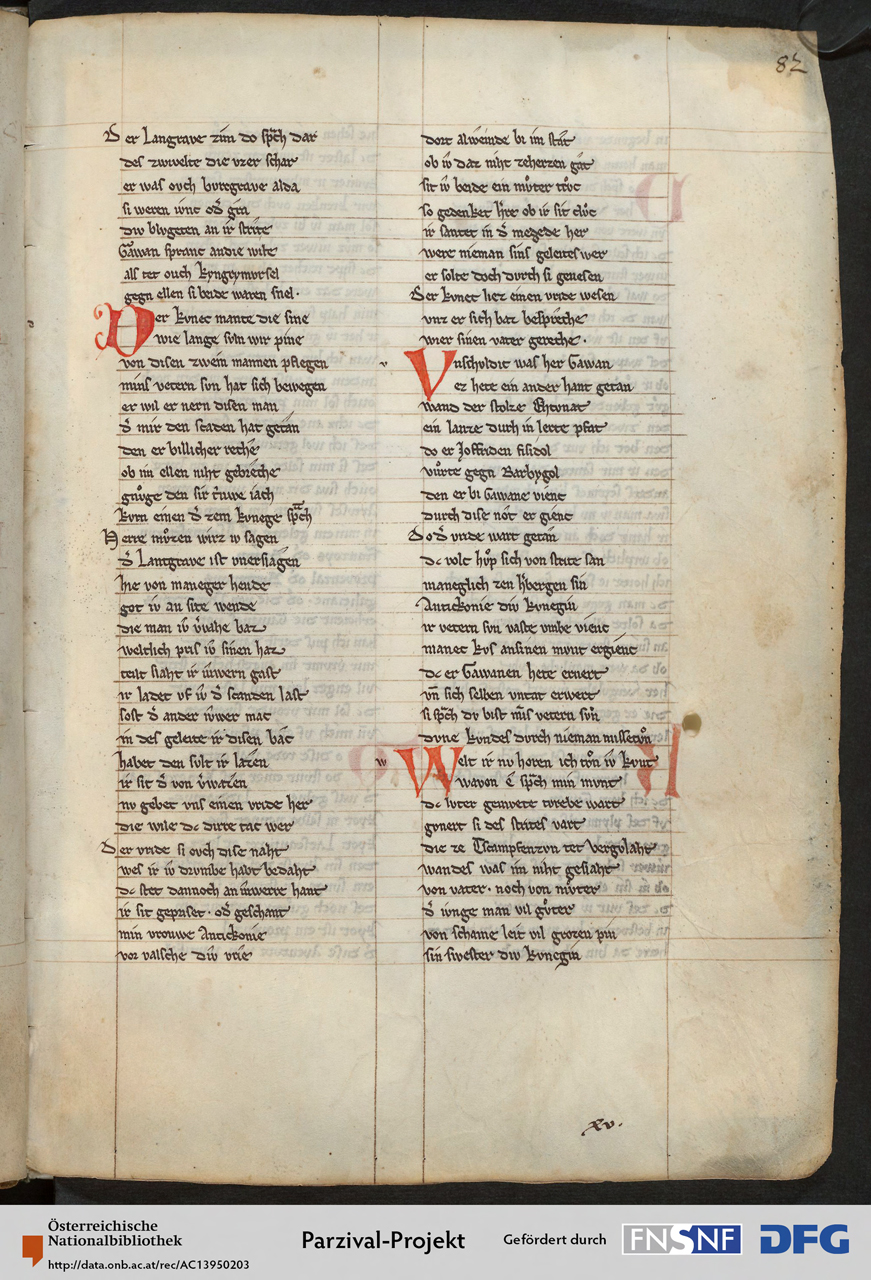 82
Der Langrave zim do sp̄ch dar
des zwivelte die vzer schar
er was ovch bvrcgrave alda
si weren ivnc od̄ gra
div blvgeten an ir strite
Gawan spranc an die wite
als tet ouch kyngrymvrsel
gegn ellen si beide waren snel·
Der kvnec mante die sine
wie lange svln wir pine
von disen zwein mannen pflegen
mins vetern svn hat sich bewegen
er wil er nern disen man
d̄ mir den scaden hat getan
den er billicher reche
ob im ellen niht gebreche
gnv̊ge den sir trivwe iach
kvrn einen d̄ zem kvnege sp̄ch
Herre mv̊zen wirz iv sagen
d̄ Lantgrave ist vnerslagen
hie von maneger hende
got iv an site wende
die man iv v̄vahe baz
weltlich pris iv sinen haz
teilt slaht ir iwern gast
ir ladet vf iv d̄ scanden last
sost d̄ ander iwer mac
in des geleite ir disen bac
habet den svlt ir lazen
ir sit d̄ von v̄wazen
nv gebet vns einen vride her
die wile dc dirre tac wer
Der vride si ovch dise naht
wes ir iv drvmbe habt bedaht
dc stet dannoch an iwerre hant
ir sit gepriset· od̄ geschant
min vrouwe Antickonie
vor valsche div vrie
dort alweinde bi im stat
ob iv daz niht zeherzen gat
sit iv beide ein mv̊ter trv̊c
so gedenket h̄re ob ir sit clv̊c
ir santet in d̄ megede her
were nieman sins geleites wer
er solte doch dvrch si genesen
Der kvnec liez einen vride wesen
vnz er sich baz bespreche
wier sinen vater gereche·
v
Vnschvldic was her Gawan
ez hete ein ander hant getan
wand der stolze Ehcvnat
ein lanze dvrh in lerte pfat
do er Joffriden fifidol
vv̊rte gegn Barbygol
den er bi Gawane vienc
dvrch dise not er gienc
Do d̄ vride wart getan
dc volc hv̊p sich von strite san
maneglich zen h̄bergen sin
Antickonie div kvnegin
ir vetern svn vaste vmbe vienc
manec kvs ansinen mvnt ergienc
dc er Gawanen hete ernert
vn̄ sich selben vntat erwert
si sp̄ch dv bist mīs vetern svn
dvne kvndes dvrch nieman missetv̊n
w
Welt ir nv horen ich tv̊n iv kvnt
wavon E sp̄ch min mvnt
dc lvter gemvete trvebe wart
gvnert si des strites vart
die ze Tscampfenzvn tet Vergvlaht
wandes was im niht geslaht
von vater· noch von mv̊ter
d̄ ivnge man vil gv̊ter
von schame leit vil grozen pin
sin swester div kvnegin
xv·
Österreichische
Nationalbibliothek
http://data.onb.ac.at/rec/AC13950203
Parzival-Projekt
Gefördert durch
FNSNF
DFG